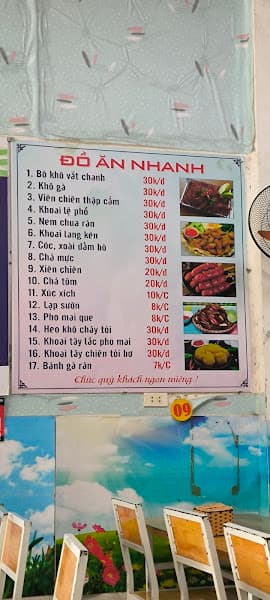 ĐỒ ĂN NHANH
1. Bò khô vắt chanh 30k/đ
2. Khô gà 30k/đ
3. Viên chiên thập cẩm 30k/đ
4. Khoai lệ phố 30k/đ
5. Nem chua rán 30k/đ
6. Khoai lang kén 30k/đ
7. Cóc, xoài dầm bò 30k/đ
8. Chả mực 30k/đ
9. Xiên chiên 20k/đ
10. Chả tôm 20k/đ
11. Xúc xích 10k/C
12. Lạp sườn 8k/C
13. Pho mai que 8k/C
14. Heo khô cháy tỏi 30k/đ
15. Khoai tây lắc pho mai 30k/đ
16. Khoai tây chiên tỏi bơ 30k/đ
17. Bánh gà rán 7k/C
Chúc quý khách ngon miệng !
09